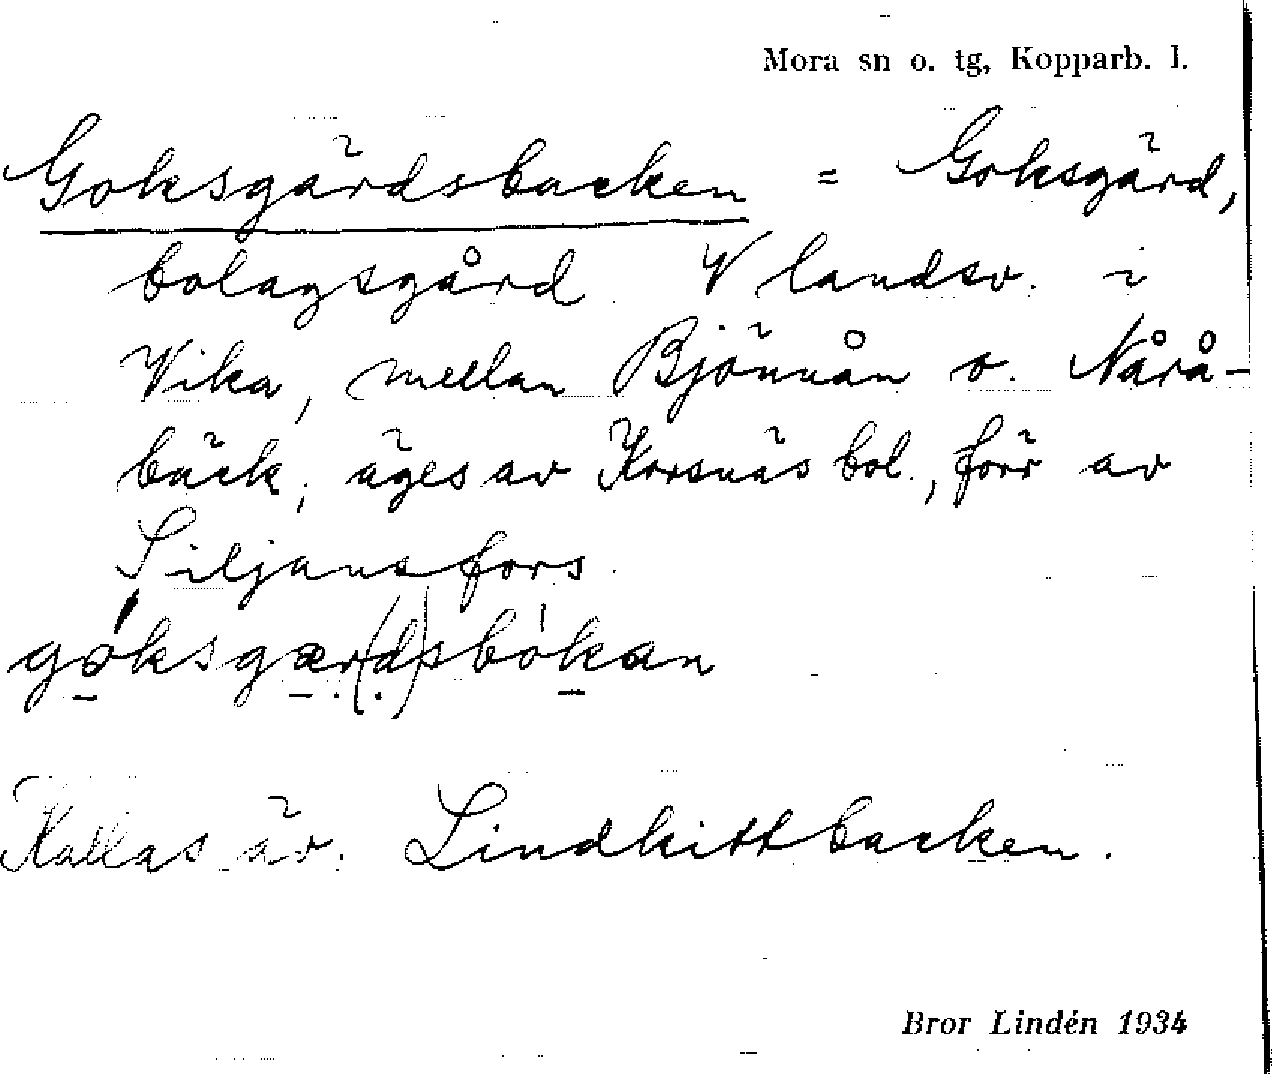 Mora sn o. tg, Kopparb. l.
Goksgärdsbacken = Goksgärd,
bolagsgård V landsv. i
Vika, mellan Bjönnån o. Nårå-
bäck, äges av Korsnäs bol., förr av
Siljansfors.
goksgær(d)sbokan
Kallas äv. Lindkittbacken.
Bror Lindén 1934